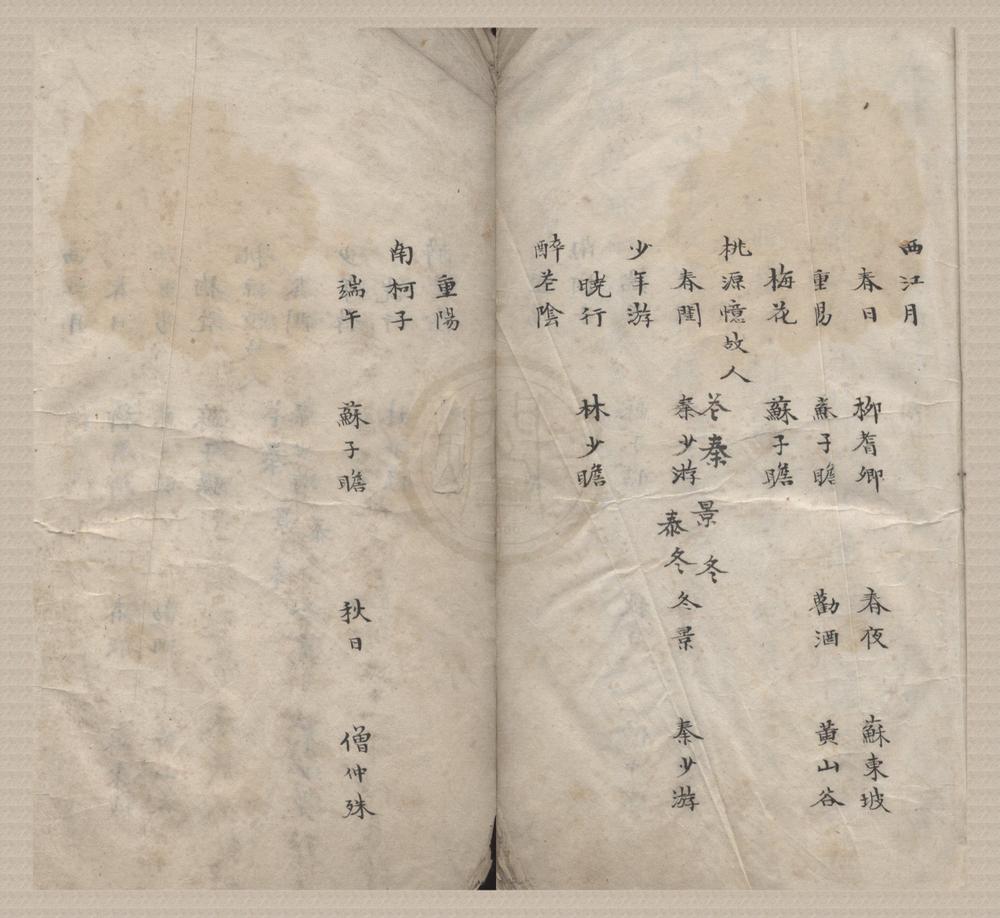 西江月
春日 柳耆卿 春夜 蘇東坡
重昜 蘇子瞻 勸酒 黄山谷
梅花 蘇子瞻
桃源憶故人
春閨 秦少游 冬景 秦少游
苍秦 景冬
泰冬
少年游
暁行 林少瞻
醉苍陰
重陽
南柯子
端午 蘇子瞻 秋日 僧仲殊